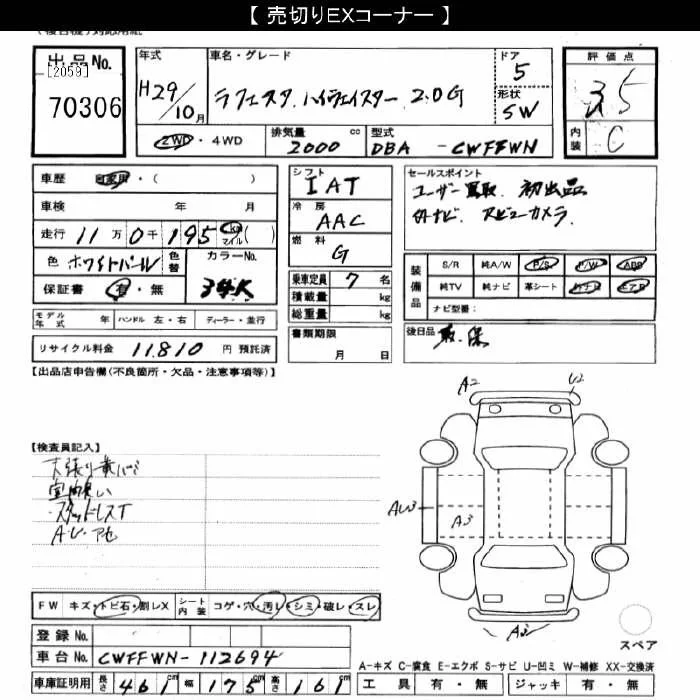 【 売切りEXコーナー 】
出品No.
[2059]
70306
年式
H29/10月
車名・グレード
ラフェスタ ハイウェイスター 2.0G
ドア
5
形状
SW
評価点
3.5
内装
C
2WD・4WD
排気量 2000 cc
型式 DBA - CWFFWN
車歴 自家用・( )
車検 年 月
走行 11万0千195 km マイル ( )
色 ホワイトパール 色替 カラーNo. 34K
保証書 有・無
モデル年式 年 ハンドル 左・右 ディーラー・並行
リサイクル料金 11.810 円 預託済
シフト IAT
冷房 AAC
燃料 G
乗車定員 7 名
積載量 kg
総重量 kg
書類期限
月 日
セールスポイント
ユーザー買取 初出品
社外ナビ バックカメラ
装備品
S/R 純A/W P/S P/W ABS
純TV 純ナビ 革シート 社外ナビ エアB
ナビ型番:
後日品 取・保
【出品店申告欄(不良箇所・欠品・注意事項等)】
【検査員記入】
スタッドレスT
A・U・アセ
A2
U2
AU3
A3
A2
FW キズ・トビ石・割レX シート内装 コゲ・穴・汚レ・シミ・破レ・スレ
登録No.
車台No. CWFFWN-112694
車庫証明用 長さ 461 cm 幅 175 cm 高さ 161 cm
スペア
A-キズ C-腐食 E-エクボ S-サビ U-凹ミ W-補修 XX-交換済
工具 有・無 ジャッキ 有・無